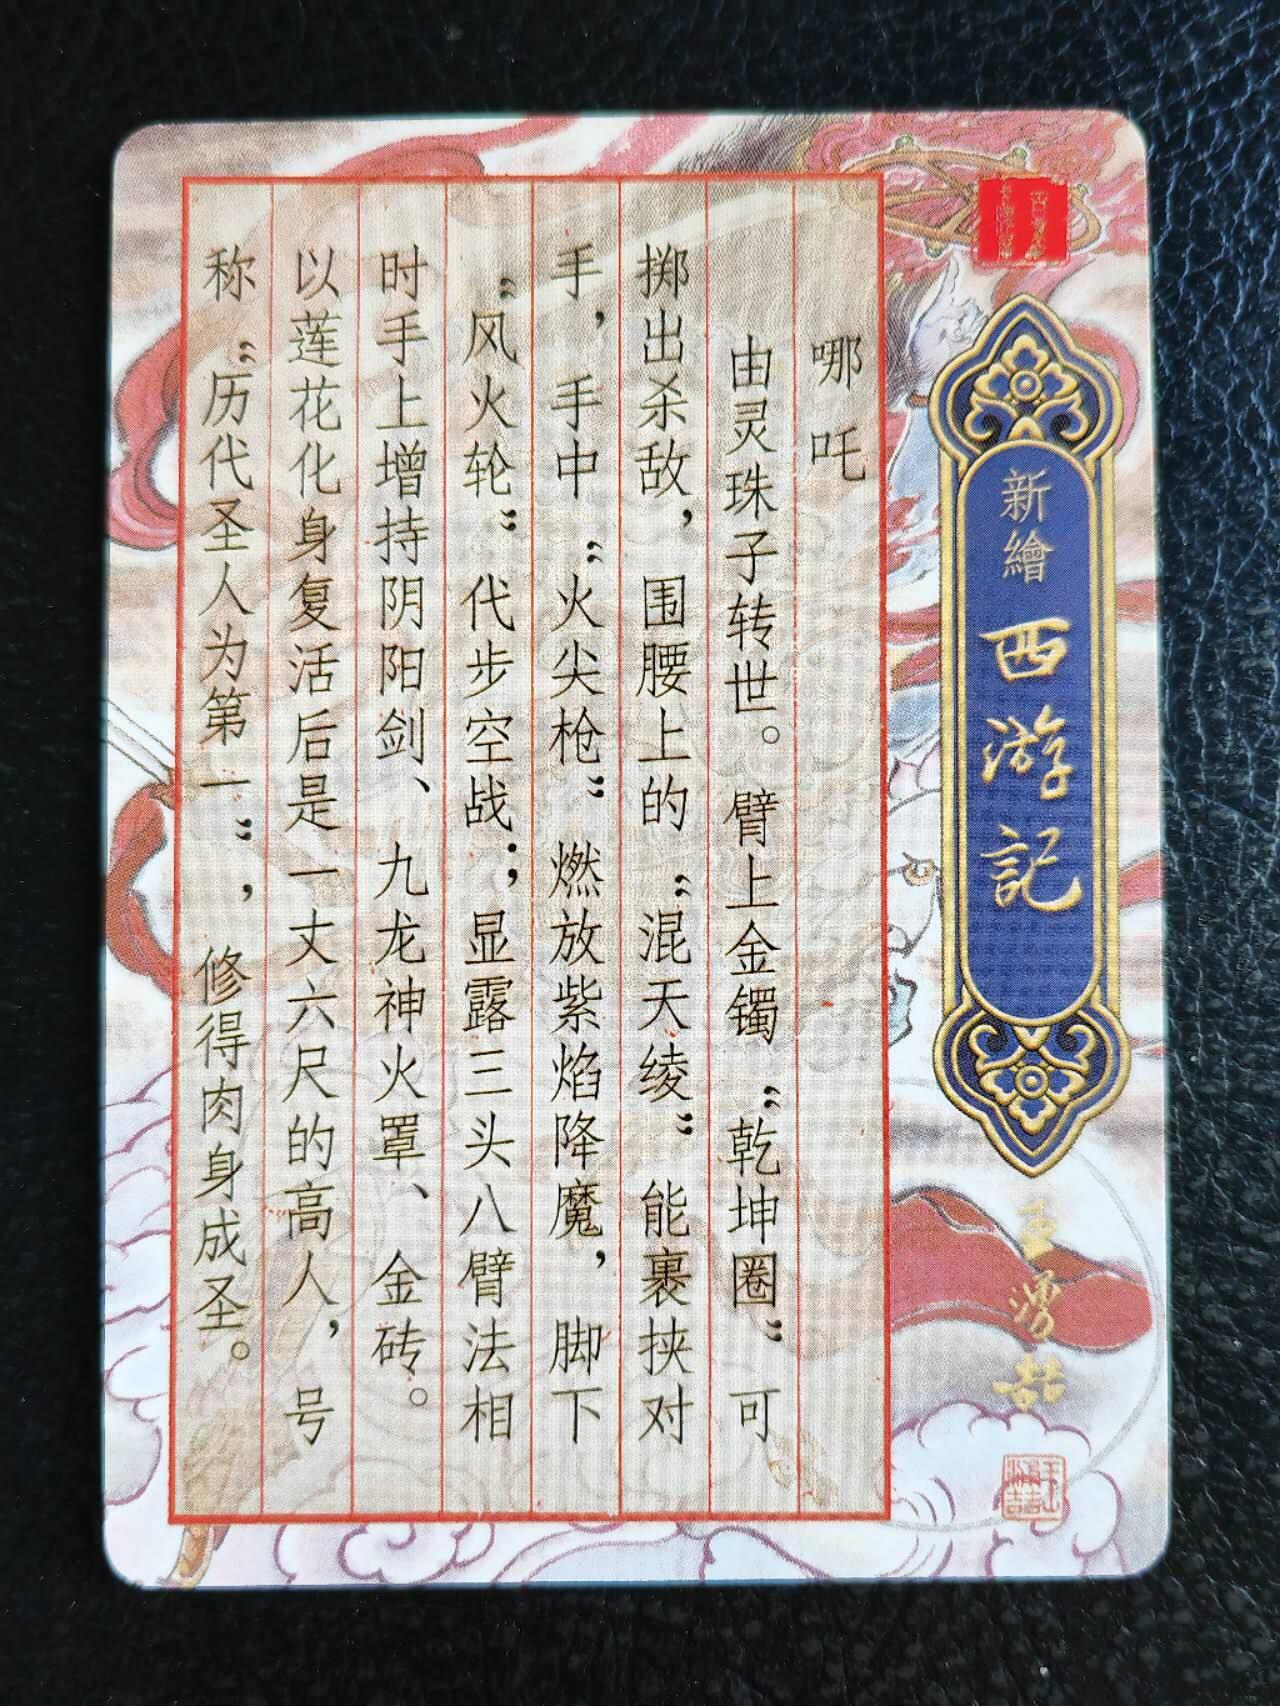 新繪西游記
哪吒
由灵珠子转世。臂上金镯“乾坤圈”可
掷出杀敌，围腰上的“混天绫”能裹挟对
手，手中“火尖枪”燃放紫焰降魔，脚下
“风火轮”代步空战；显露三头八臂法相
时手上增持阴阳剑、九龙神火罩、金砖。
以莲花化身复活后是一丈六尺的高人，号
称“历代圣人为第一”，修得肉身成圣。